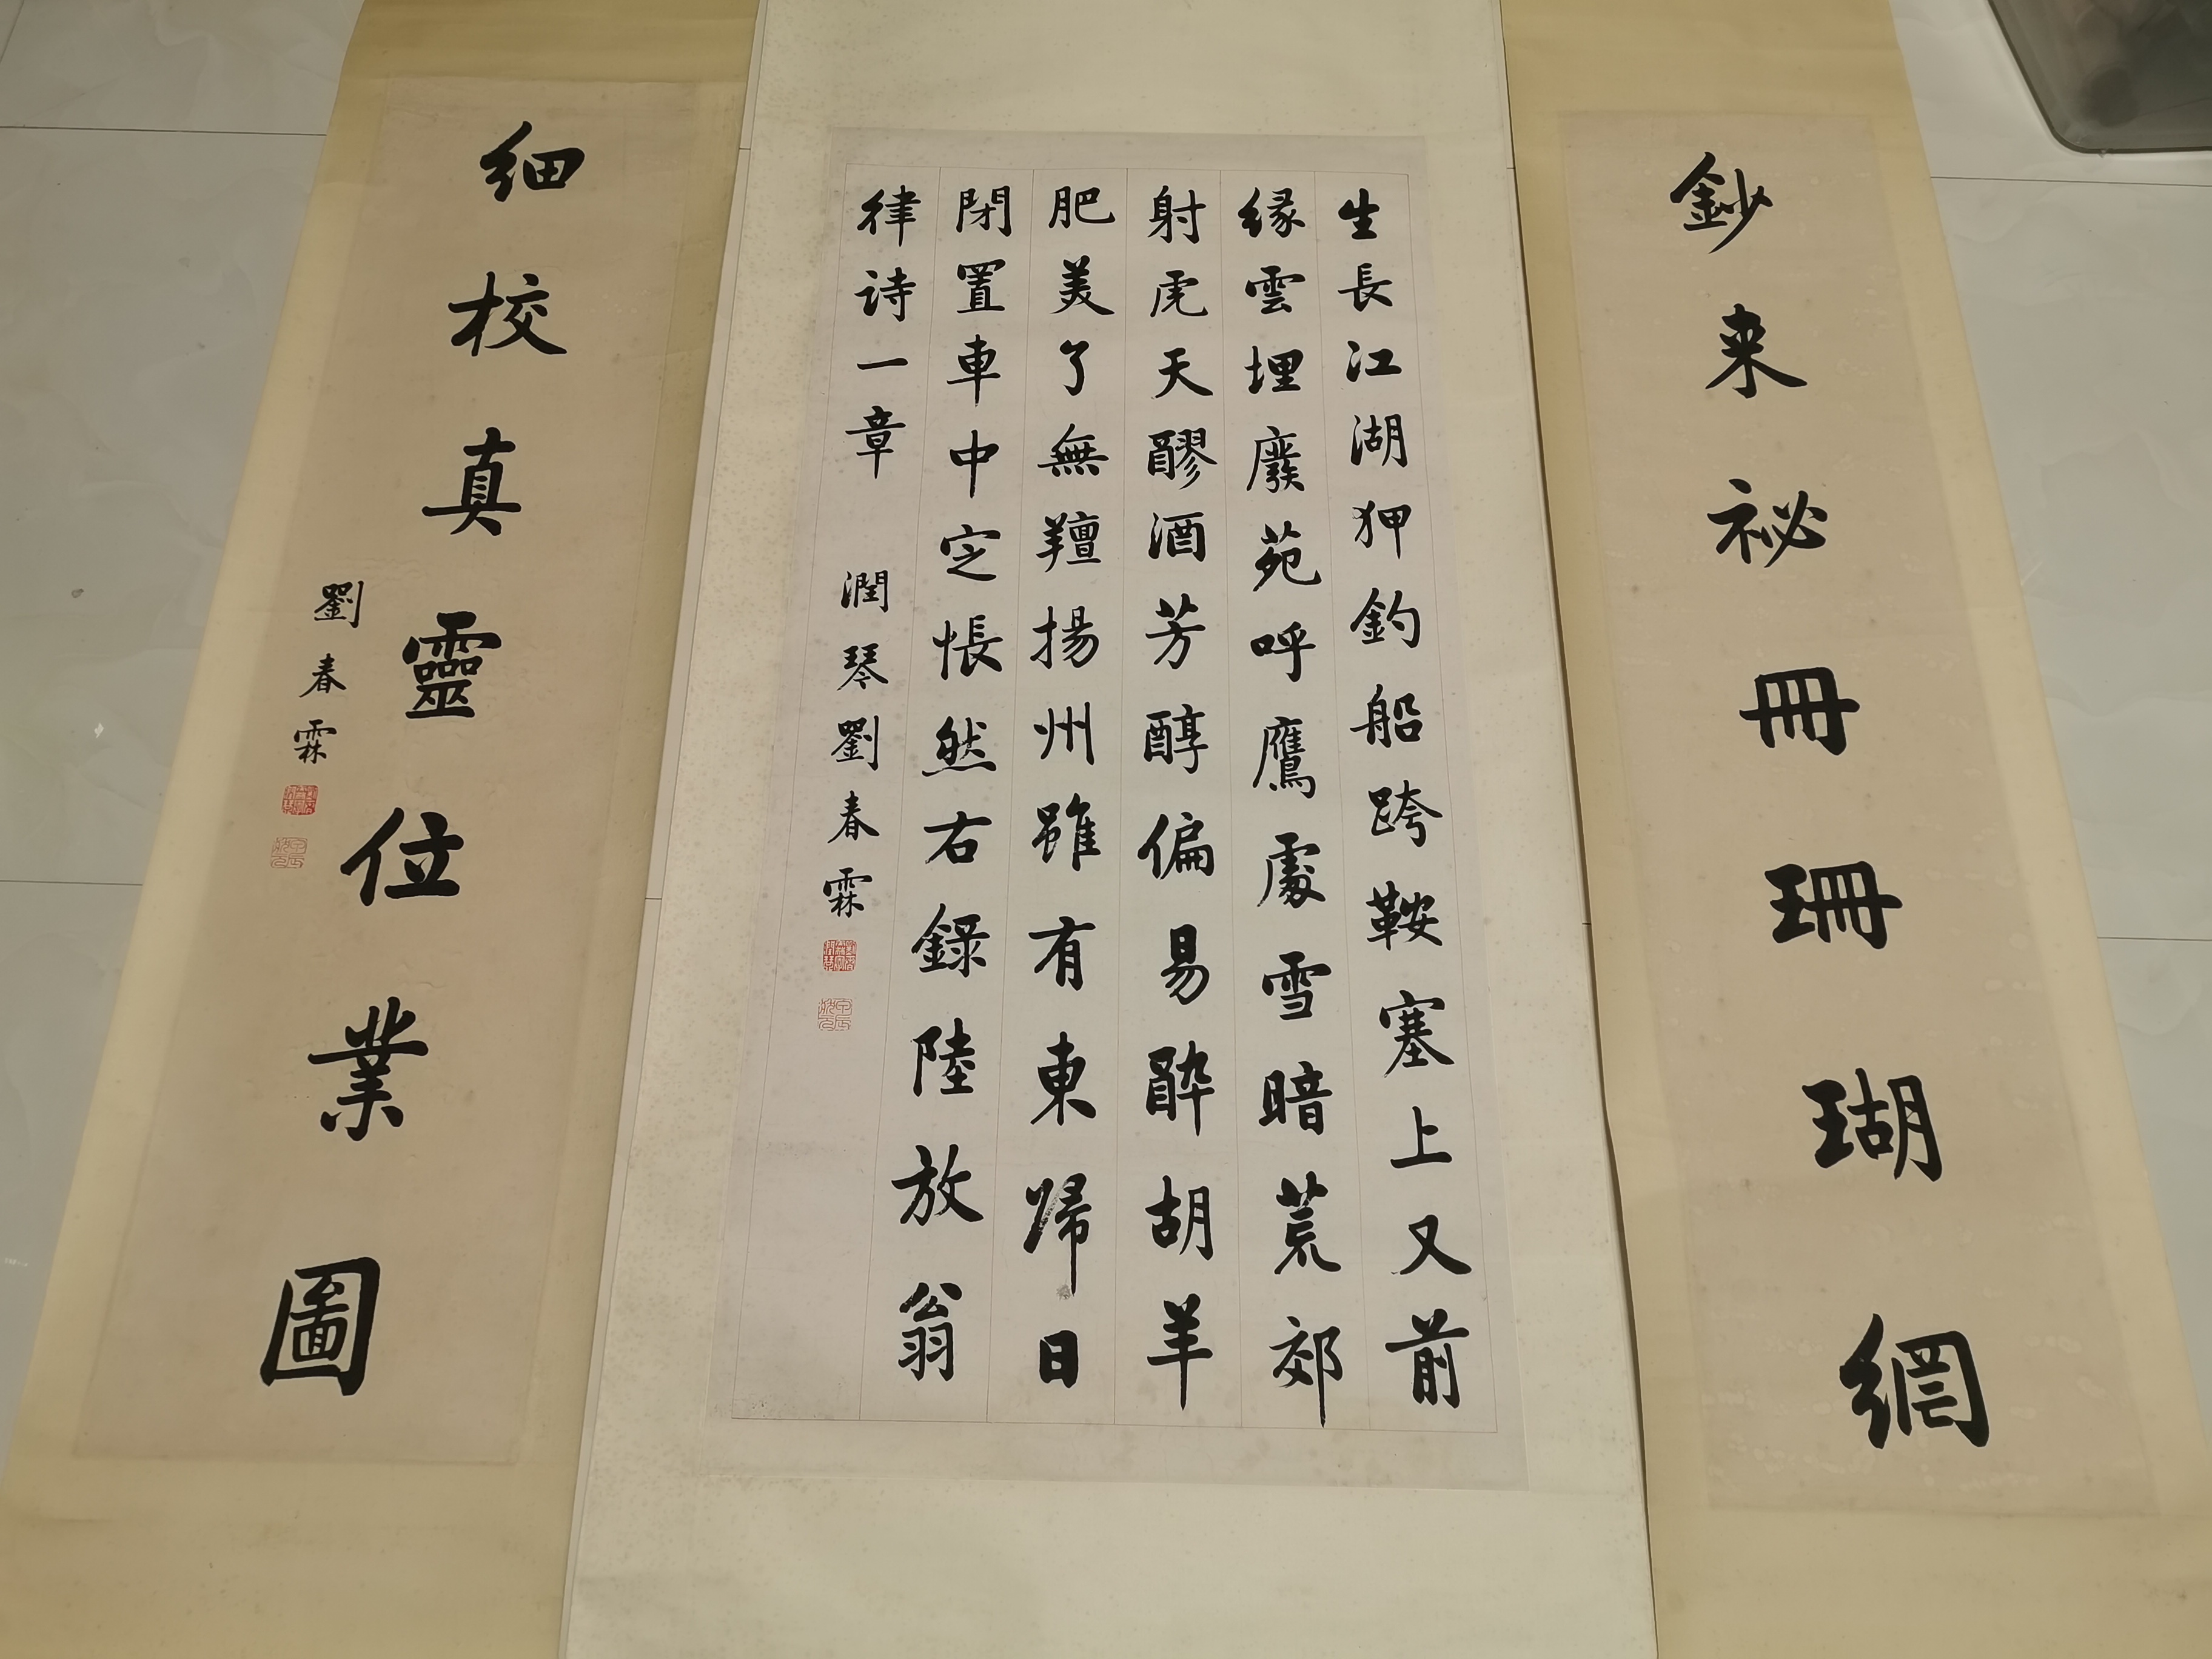 鈔来祕冊珊瑚網
生長江湖狎釣船跨鞍塞上又前
緣雲埋廢苑呼鷹處雪暗荒郊
射虎天醪酒芳醇偏易醉胡羊
肥美了無羶揚州雖有東歸日
閉置車中定悵然右錄陸放翁
律詩一章
潤琴劉春霖
细校真靈位業圖
劉春霖